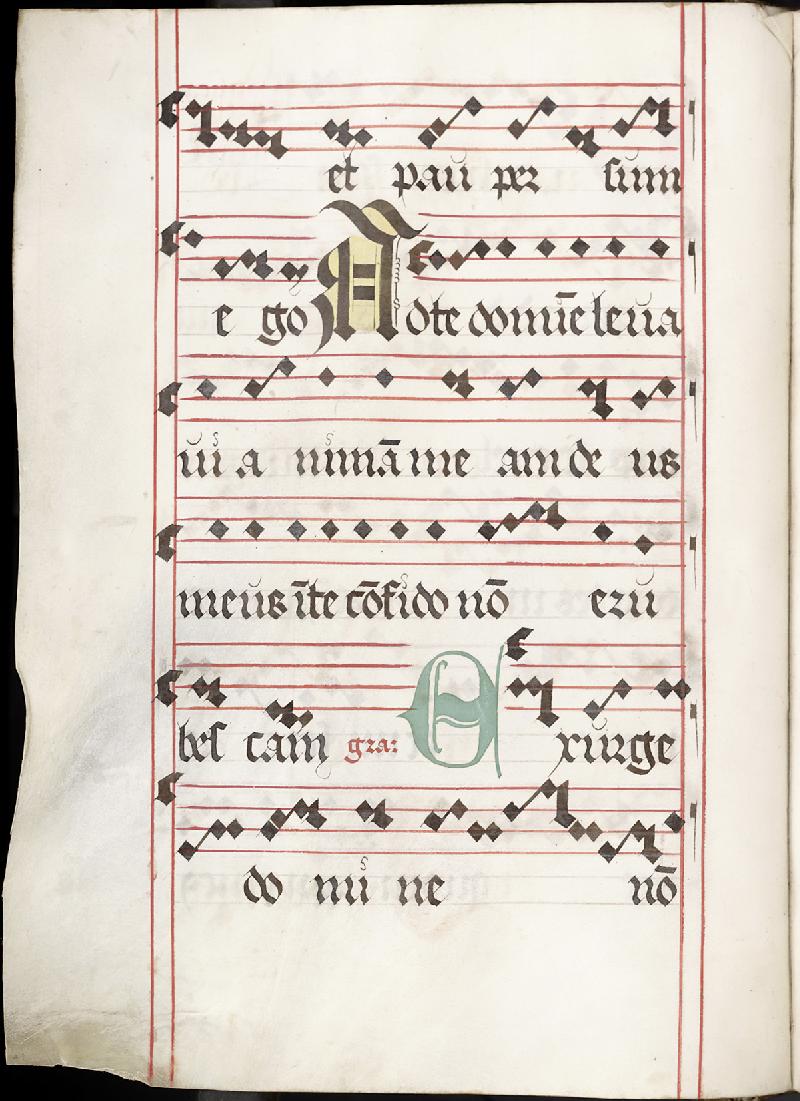 et pau per sum
e go Adte domīe leua
ui a nimā me am de us
meus ī te cōfido nō eru
bes cam gra: Exurge
do mi ne nō